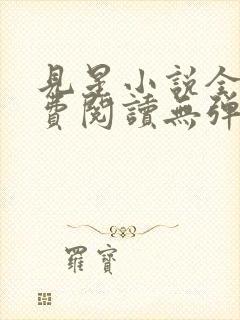 見星小說全
費閱讀無彈
羅寶